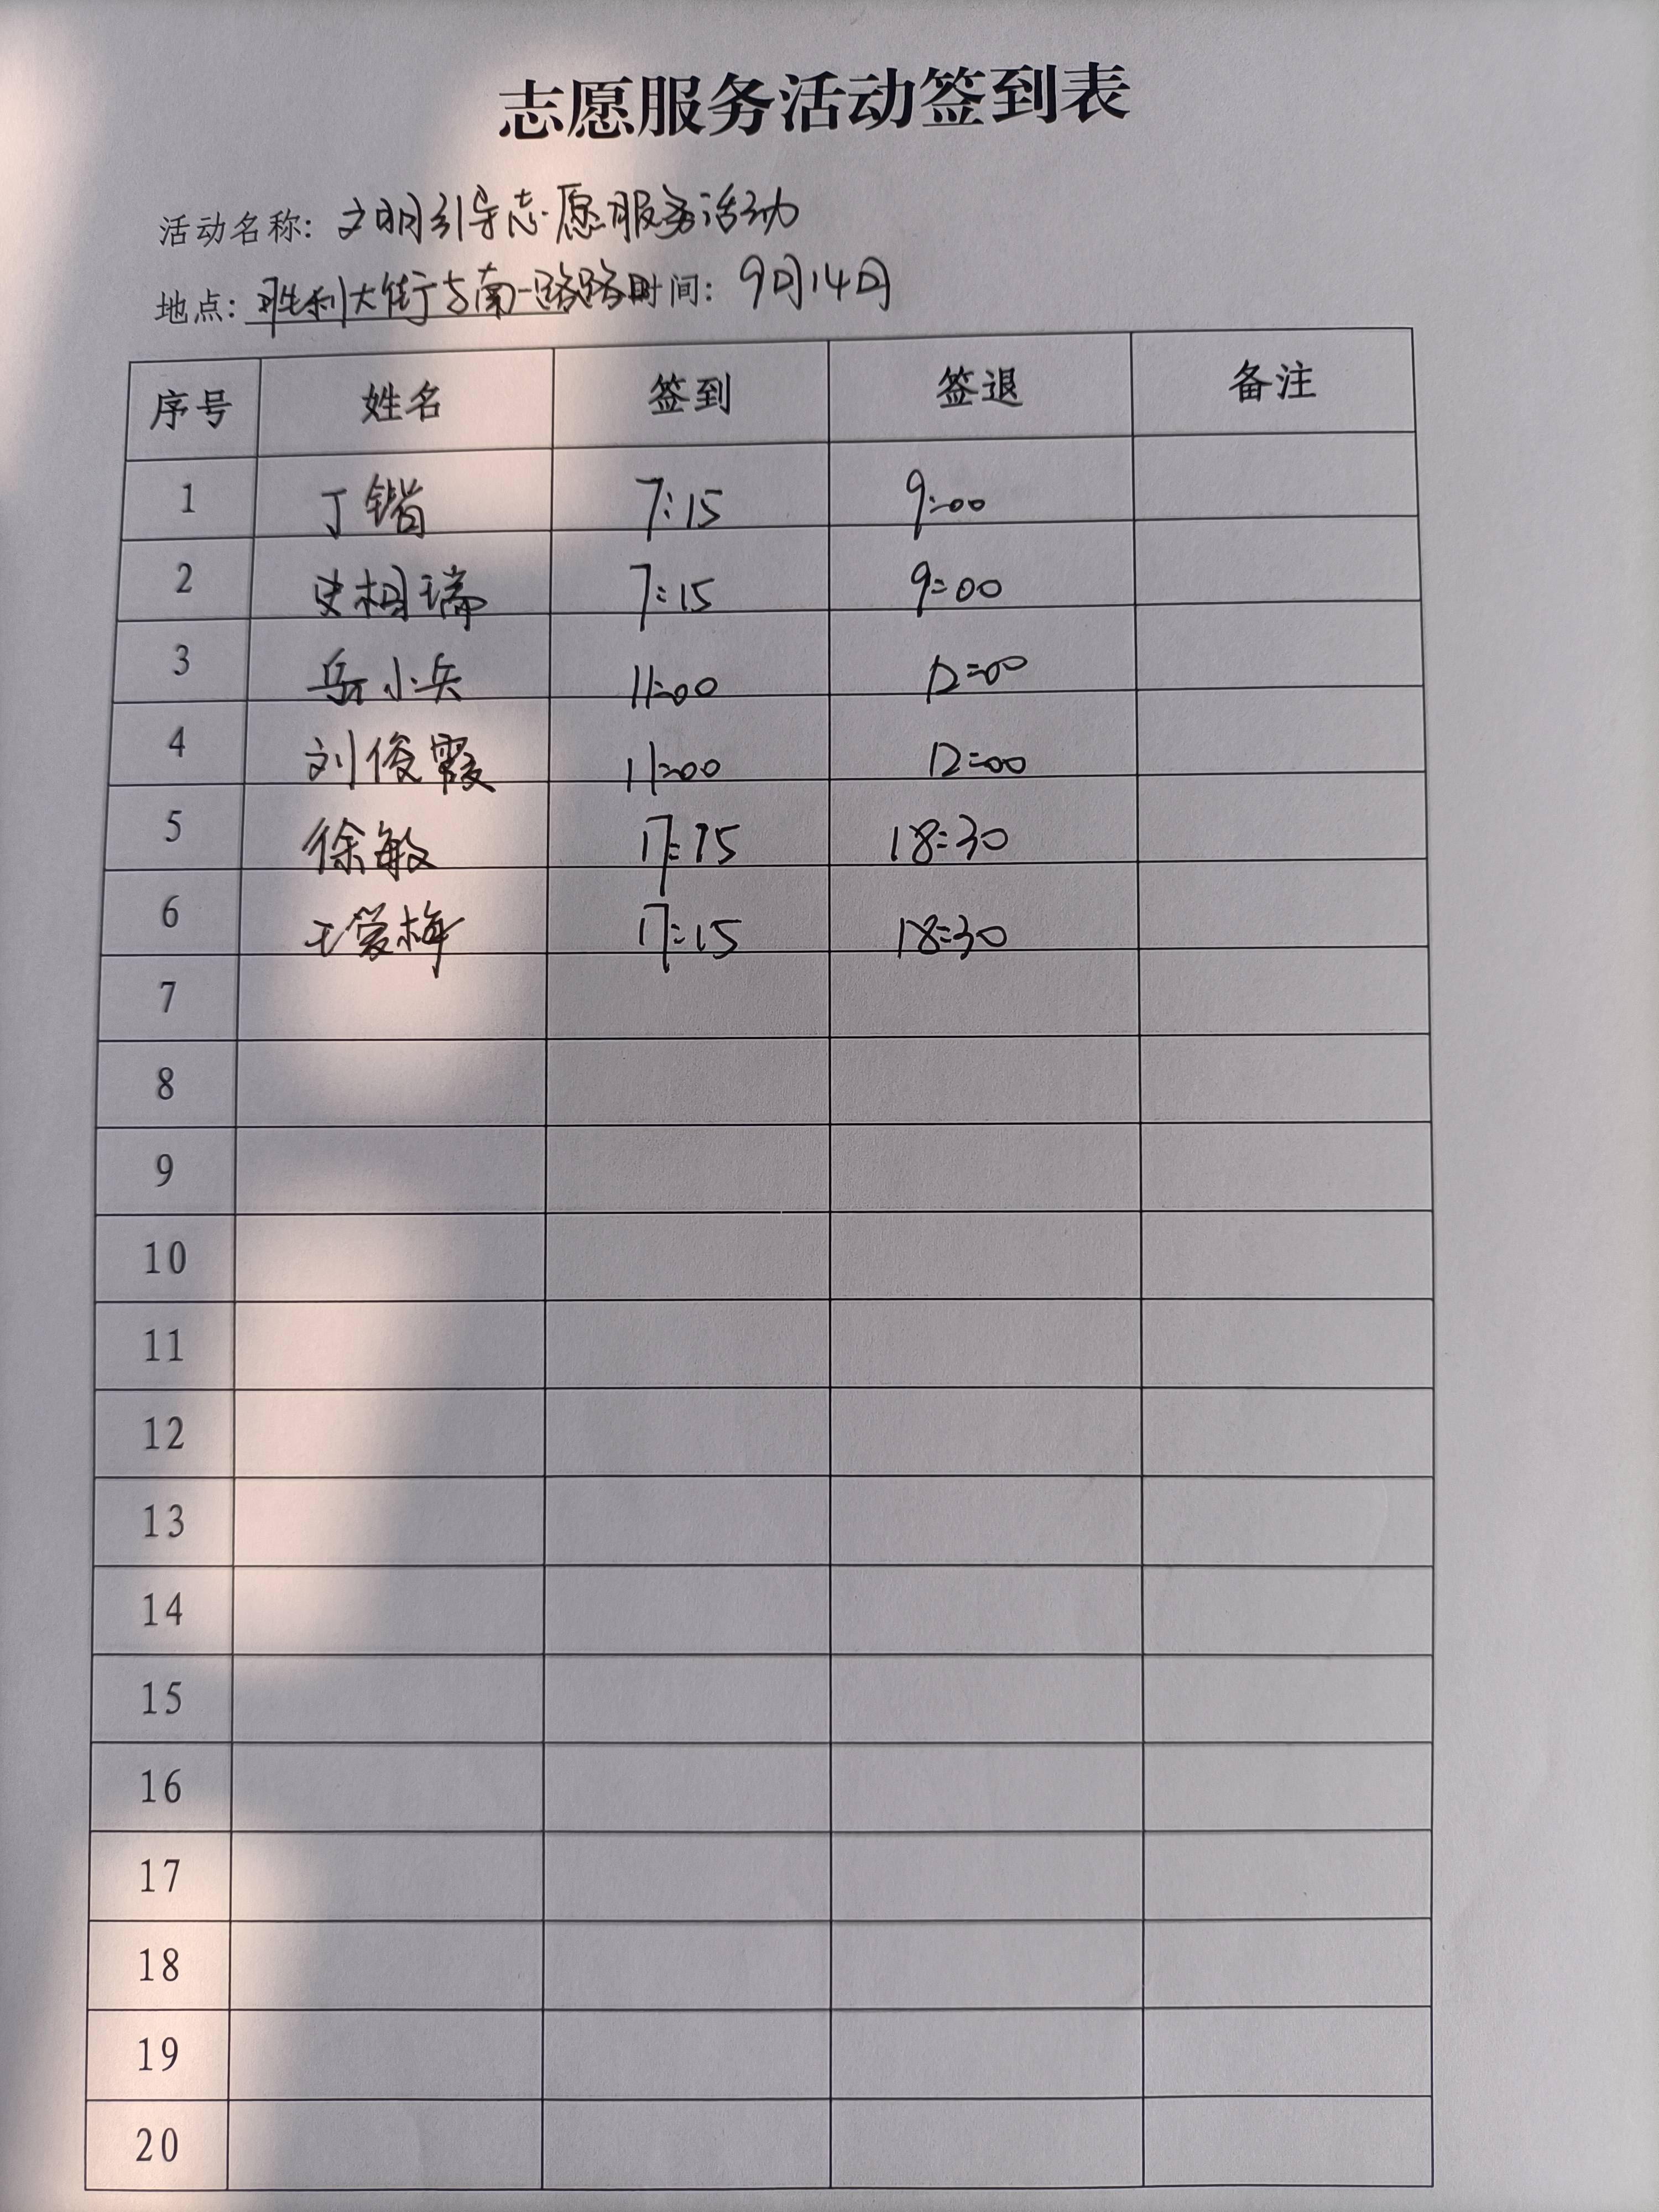 志愿服务活动签到表
活动名称: 文明引导志愿服务活动
地点: 胜利大街与南一路路 时间: 9月14日
序号 姓名 签到 签退 备注
1 丁锴 7:15 9:00
2 史相瑞 7:15 9:00
3 岳小兵 11:00 12:00
4 刘俊霞 11:00 12:00
5 徐敏 17:15 18:30
6 王爱梅 17:15 18:30
7
8
9
10
11
12
13
14
15
16
17
18
19
20